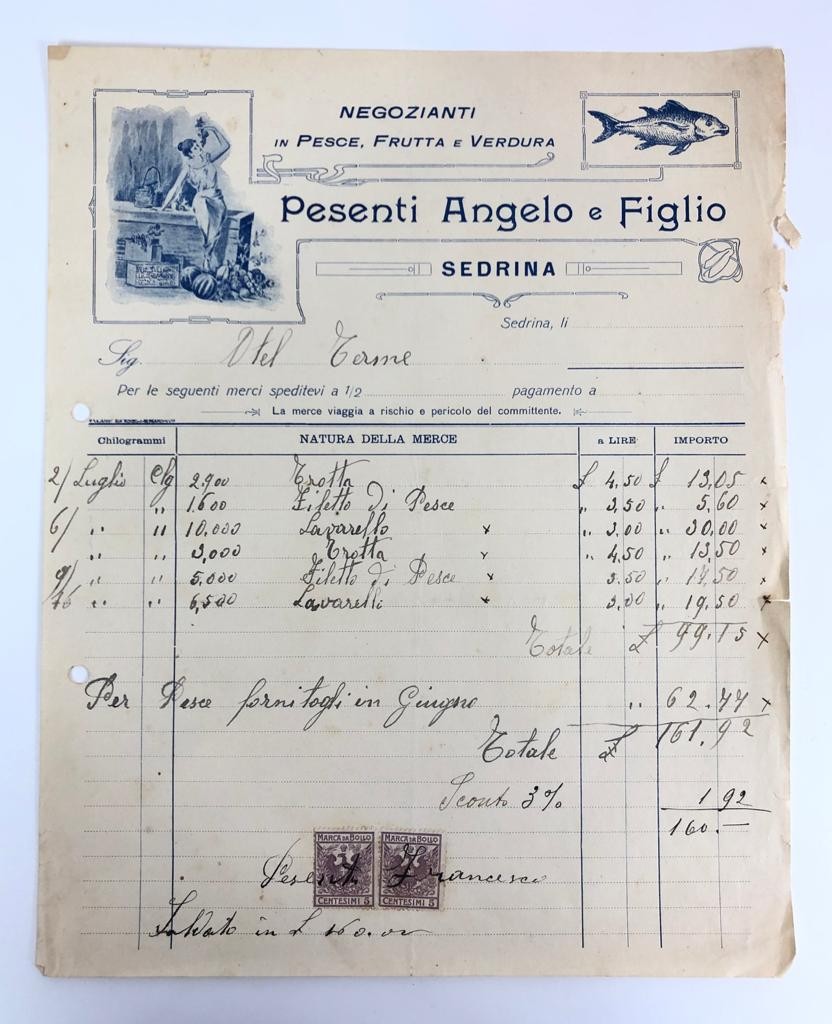 NEGOZIANTI
IN PESCE, FRUTTA E VERDURA
Pesenti Angelo e Figlio
SEDRINA
Sedrina, li
Sig. Otel Terme
Per le seguenti merci speditevi a 1/2 pagamento a
La merce viaggia a rischio e pericolo del committente.
Chilogrammi NATURA DELLA MERCE a LIRE IMPORTO
2/ Luglio Clg 2.900 Trotta £ 4,50 £ 13,05 x
" 1.600 Filetto di Pesce " 3,50 " 5,60 x
6/ " " 10,000 Lavarello x " 3,00 " 30,00 x
" " 3,000 Trotta x " 4,50 " 13,50 x
9/ " " 5,000 Filetto di Pesce x 3.50 " 17,50 x
" " 6,500 Lavarelli x 3,00 " 19,50 x
Totale £ 99.15 x
Per Pesce fornitogli in Giugno " 62.77 x
Totale £ 161,92
Sconto 3% 1 92
160.—
MARCA DA BOLLO MARCA DA BOLLO
Pesenti Francesco
CENTESIMI 5 CENTESIMI 5
Saldato in £ 160.00